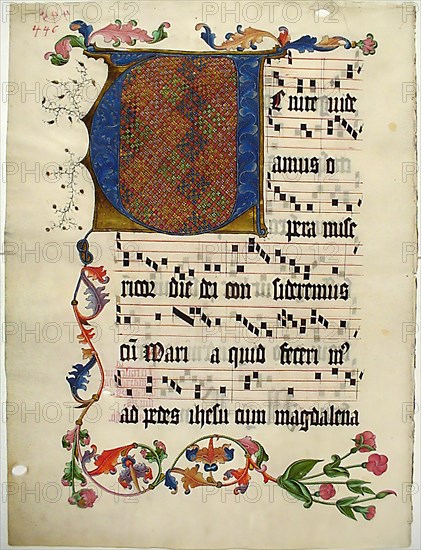 446
V
enite vide
amus o
pera mise
ricor die dei con sideremus
cū Mari a quid feceri m⁹
ad pedes ihesu cum magdalena
PHOTO12